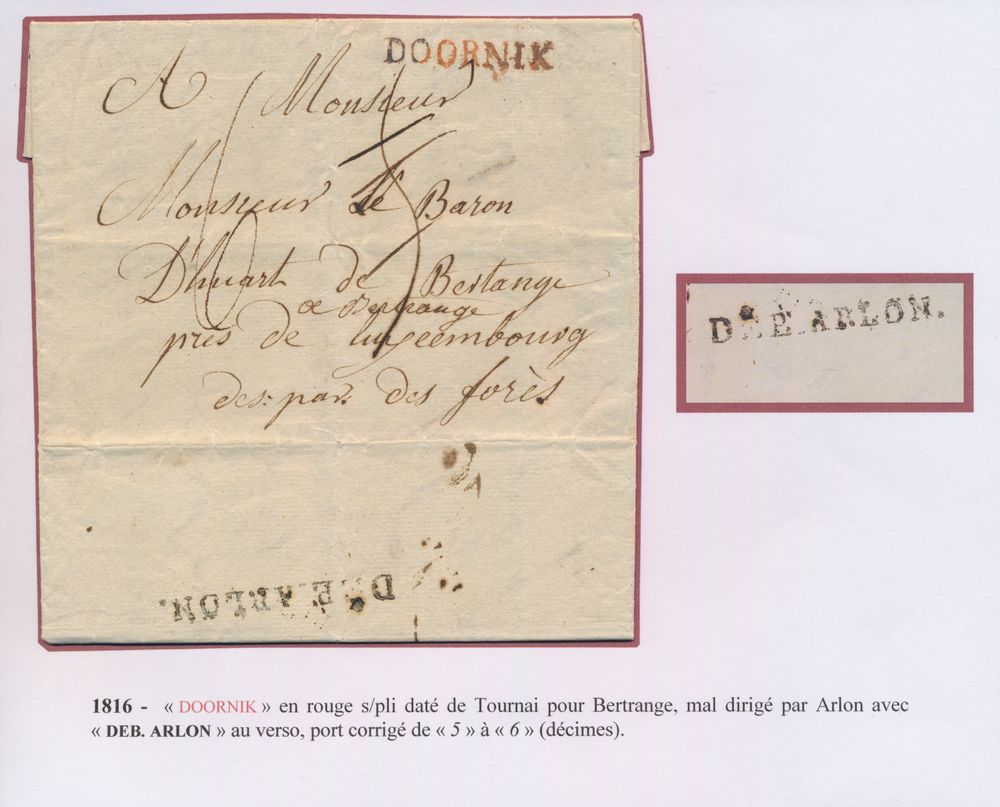 DOORNIK
A Monsieur
6 5
Monsieur le Baron
D'huart de Bertange
de Bertrange
près de luxeembourg
des: par. des forès
DEE ARLON.
DEE ARLON.
1816 - « DOORNIK » en rouge s/pli daté de Tournai pour Bertrange, mal dirigé par Arlon avec
« DEB. ARLON » au verso, port corrigé de « 5 » à « 6 » (décimes).